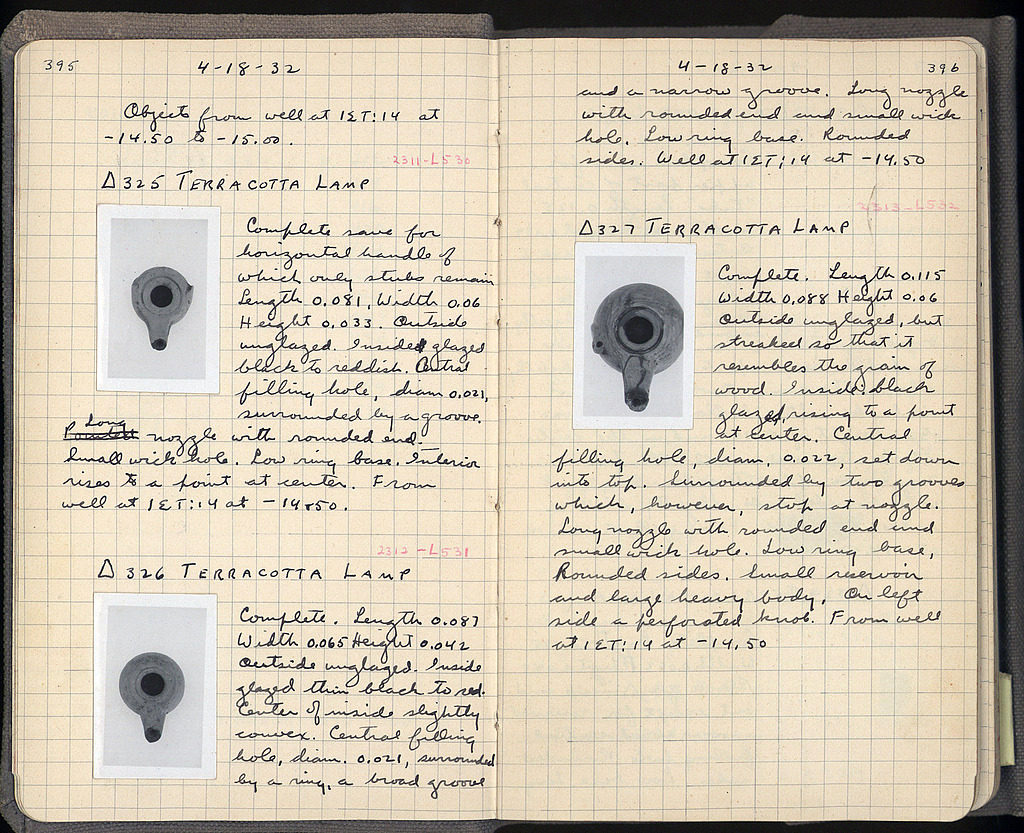 395
4-18-32
Objects from well at 12T:14 at
-14.50 to -15.00.
2311-L530
Δ325 TERRACOTTA LAMP
Complete save for
horizontal handle of
which only stubs remain
Length 0.081, Width 0.06
Height 0.033. Outside
unglazed. Inside glazed
black to reddish. Central
filling hole, diam 0.021,
surrounded by a groove.
Long
nozzle with rounded end.
Small wick hole. Low ring base. Interior
rises to a point at center. From
well at 12T:14 at -14.50.
2312-L531
Δ326 TERRACOTTA LAMP
Complete. Length 0.087
Width 0.065 Height 0.042
Outside unglazed. Inside
glazed thin black to red.
Center of inside slightly
convex. Central filling
hole, diam. 0.021, surrounded
by a ring, a broad groove
4-18-32
396
and a narrow groove. Long nozzle
with rounded end and small wick
hole. Low ring base. Rounded
sides. Well at 12T:14 at -14.50
2313-L532
Δ327 TERRACOTTA LAMP
Complete. Length 0.115
Width 0.088 Height 0.06
Outside unglazed, but
streaked so that it
resembles the grain of
wood. Inside: black
glazed, rising to a point
at center. Central
filling hole, diam. 0.022, set down
into top. Surrounded by two grooves
which, however, stop at nozzle.
Long nozzle with rounded end and
small wick hole. Low ring base,
Rounded sides. Small reservoir
and large heavy body. On left
side a perforated knob. From well
at 12T:14 at -14.50